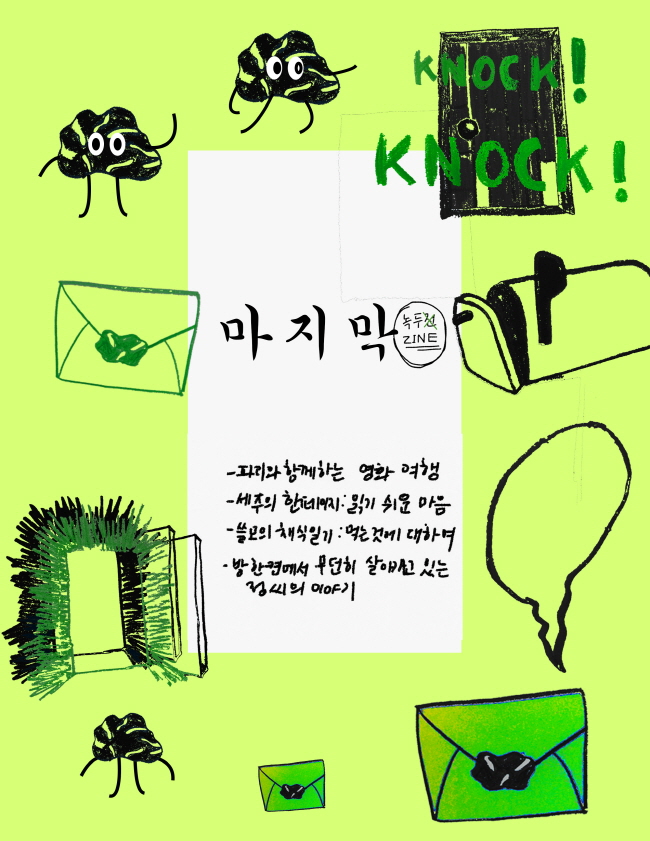 KNOCK!
KNOCK!
마지막
녹두전
ZINE
-파리와 함께하는 영화 여행
-세주의 한페이지: 읽기 쉬운 마음
-쓸고의 채식일기: 먹는것에 대하여
-방한켠에서 무던히 살아내고 있는
정씨의 이야기